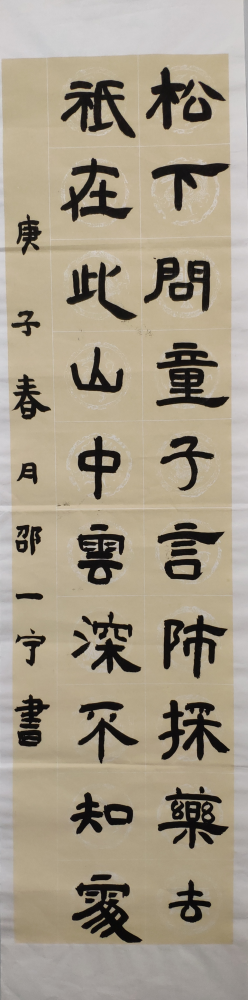 松下問童子言師採藥去
祇在此山中雲深不知處
庚子春月邵一宁書